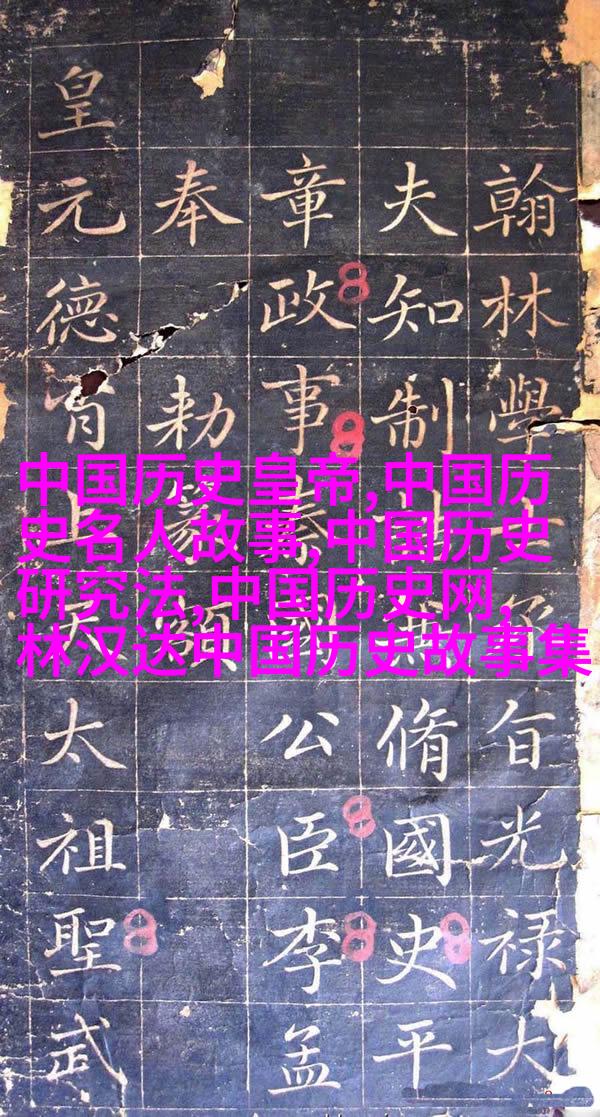 翰林學士承旨光禄大
夫知制誥兼脩國史平
章政事秦國公臣李孟
奉勅篆額
皇元德肖上天太祖聖武
中国历史皇帝,中国历
史名人故事,中国历史
研究法,中国历史网,
林汉达中国历史故事集